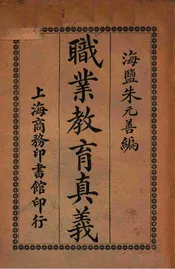 海鹽朱元善編
職業教育真義
上海商務印書館印行